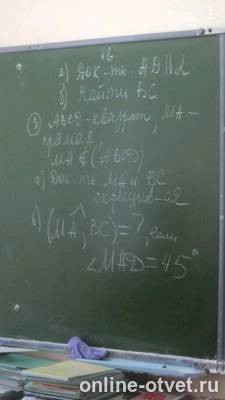 16
а) Док-ть. AD || α
б) Найти BC
③ ABCD-квадрат, MA-
прямая
MA ⊄ (ABCD)
а) Док-ть MA и BC
скрещив-ся
б) (MA, BC) = ?, если
∠MAD = 45°
online-otvet.ru